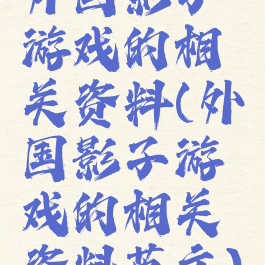 外国影子
游戏的相
关资料(外
国影子游
戏的相关
资料英文)